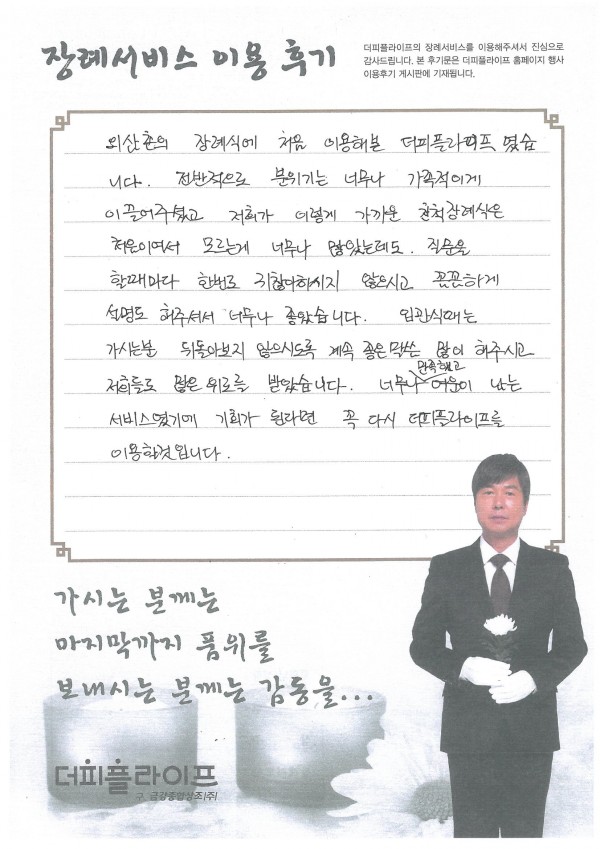 장례서비스 이용 후기
더피플라이프의 장례서비스를 이용해주셔서 진심으로
감사드립니다. 본 후기문은 더피플라이프 홈페이지 행사
이용후기 게시판에 기재됩니다.
외삼촌의 장례식에 처음 이용해본 더피플라이프 였습
니다. 전반적으로 분위기는 너무나 가족적이게
이끌어주셨고 저희가 이렇게 가까운 친척장례식은
처음이여서 모르는게 너무나 많았는데도. 질문을
할때마다 한번도 귀찮아하시지 않으시고 꼼꼼하게
설명도 해주셔서 너무나 좋았습니다. 입관식때는
가시는분 뒤돌아보지 않으시도록 계속 좋은말씀 많이 해주시고
저희들도 많은 위로를 받았습니다. 너무나 만족했고 여운이 남는
서비스였기에 기회가 된다면 꼭 다시 더피플라이프를
이용할것입니다.
가시는 분께는
마지막까지 품위를
보내시는 분께는 감동을...
더피플라이프
구. 금강종합상조(주)